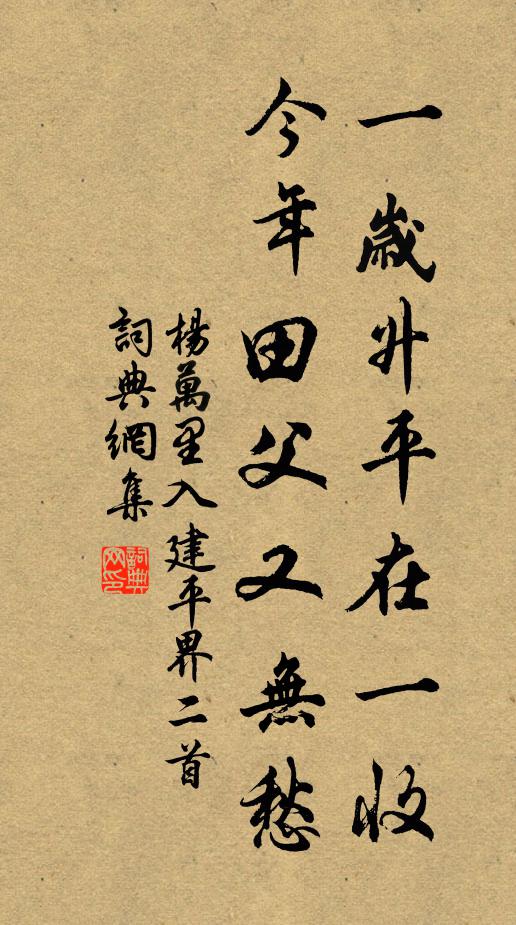 一歲升平在一收
今年田父又無愁
楊萬里入建平界二首
詞典網集
詞典網印